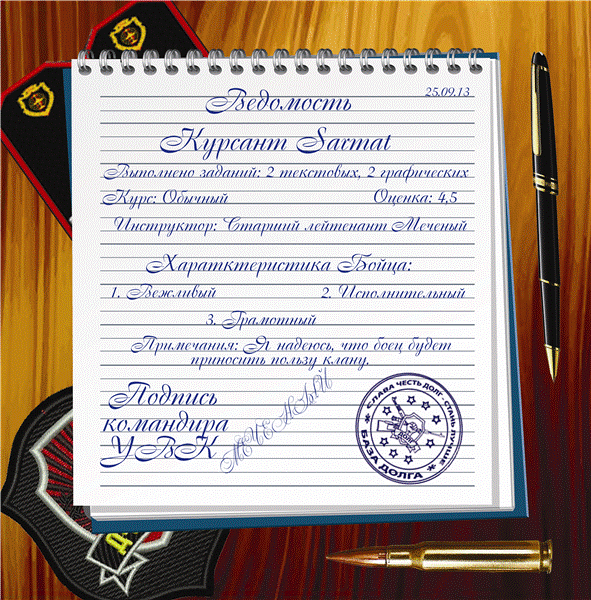 25.09.13
Ведомость
Курсант Sarmat
Выполнено заданий: 2 текстовых, 2 графических
Курс: Обычный Оценка: 4,5
Инструктор: Старший лейтенант Меченый
Харатктеристика Бойца:
1. Вежливый 2. Исполнительный
3. Грамотный
Примечания: Я надеюсь, что боец будет
приносить пользу клану.
Подпись
командира
УВК
МЕЧЕНЫЙ
СЛАВА ЧЕСТЬ ДОЛГ - СТАНЬ
БАЗА ДОЛГА